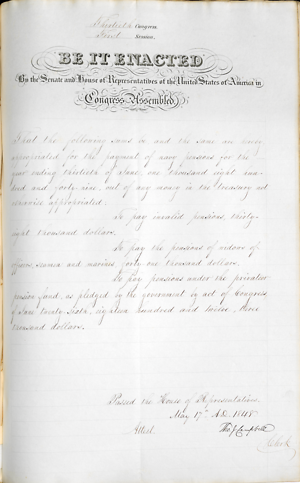 Thirtieth Congress
First Session.
BE IT ENACTED
By the Senate and House of Representatives of the United States of America in
Congress Assembled,
That the following sums be and the same are hereby
appropriated for the payment of navy pensions for the
year ending thirtieth of June, one thousand eight hun-
dred and forty-nine, out of any money in the treasury not
otherwise appropriated:
To pay invalid pensions, thirty-
eight thousand dollars.
To pay the pensions of widows of
officers, seamen and marines, forty one thousand dollars.
To pay pensions under the privateer
pension fund, as pledged by the government by act of Congress
of June twenty sixth, eighteen hundred and twelve, three
thousand dollars.
Passed the House of Representatives,
May 17th A.D. 1848
Attest. Tho J Campbell
Clerk